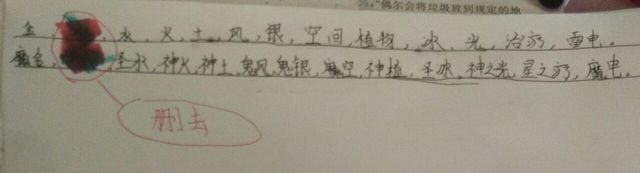 ”偶尔会将垃圾放到规定的地
金 水,火,土,风,银,空间,植物,冰,光,治疗,雷电.
魔金, 圣水,神火,神土,鬼风,鬼银,鬼空,神植,圣冰,神之光,星之疗,魔电.
删去